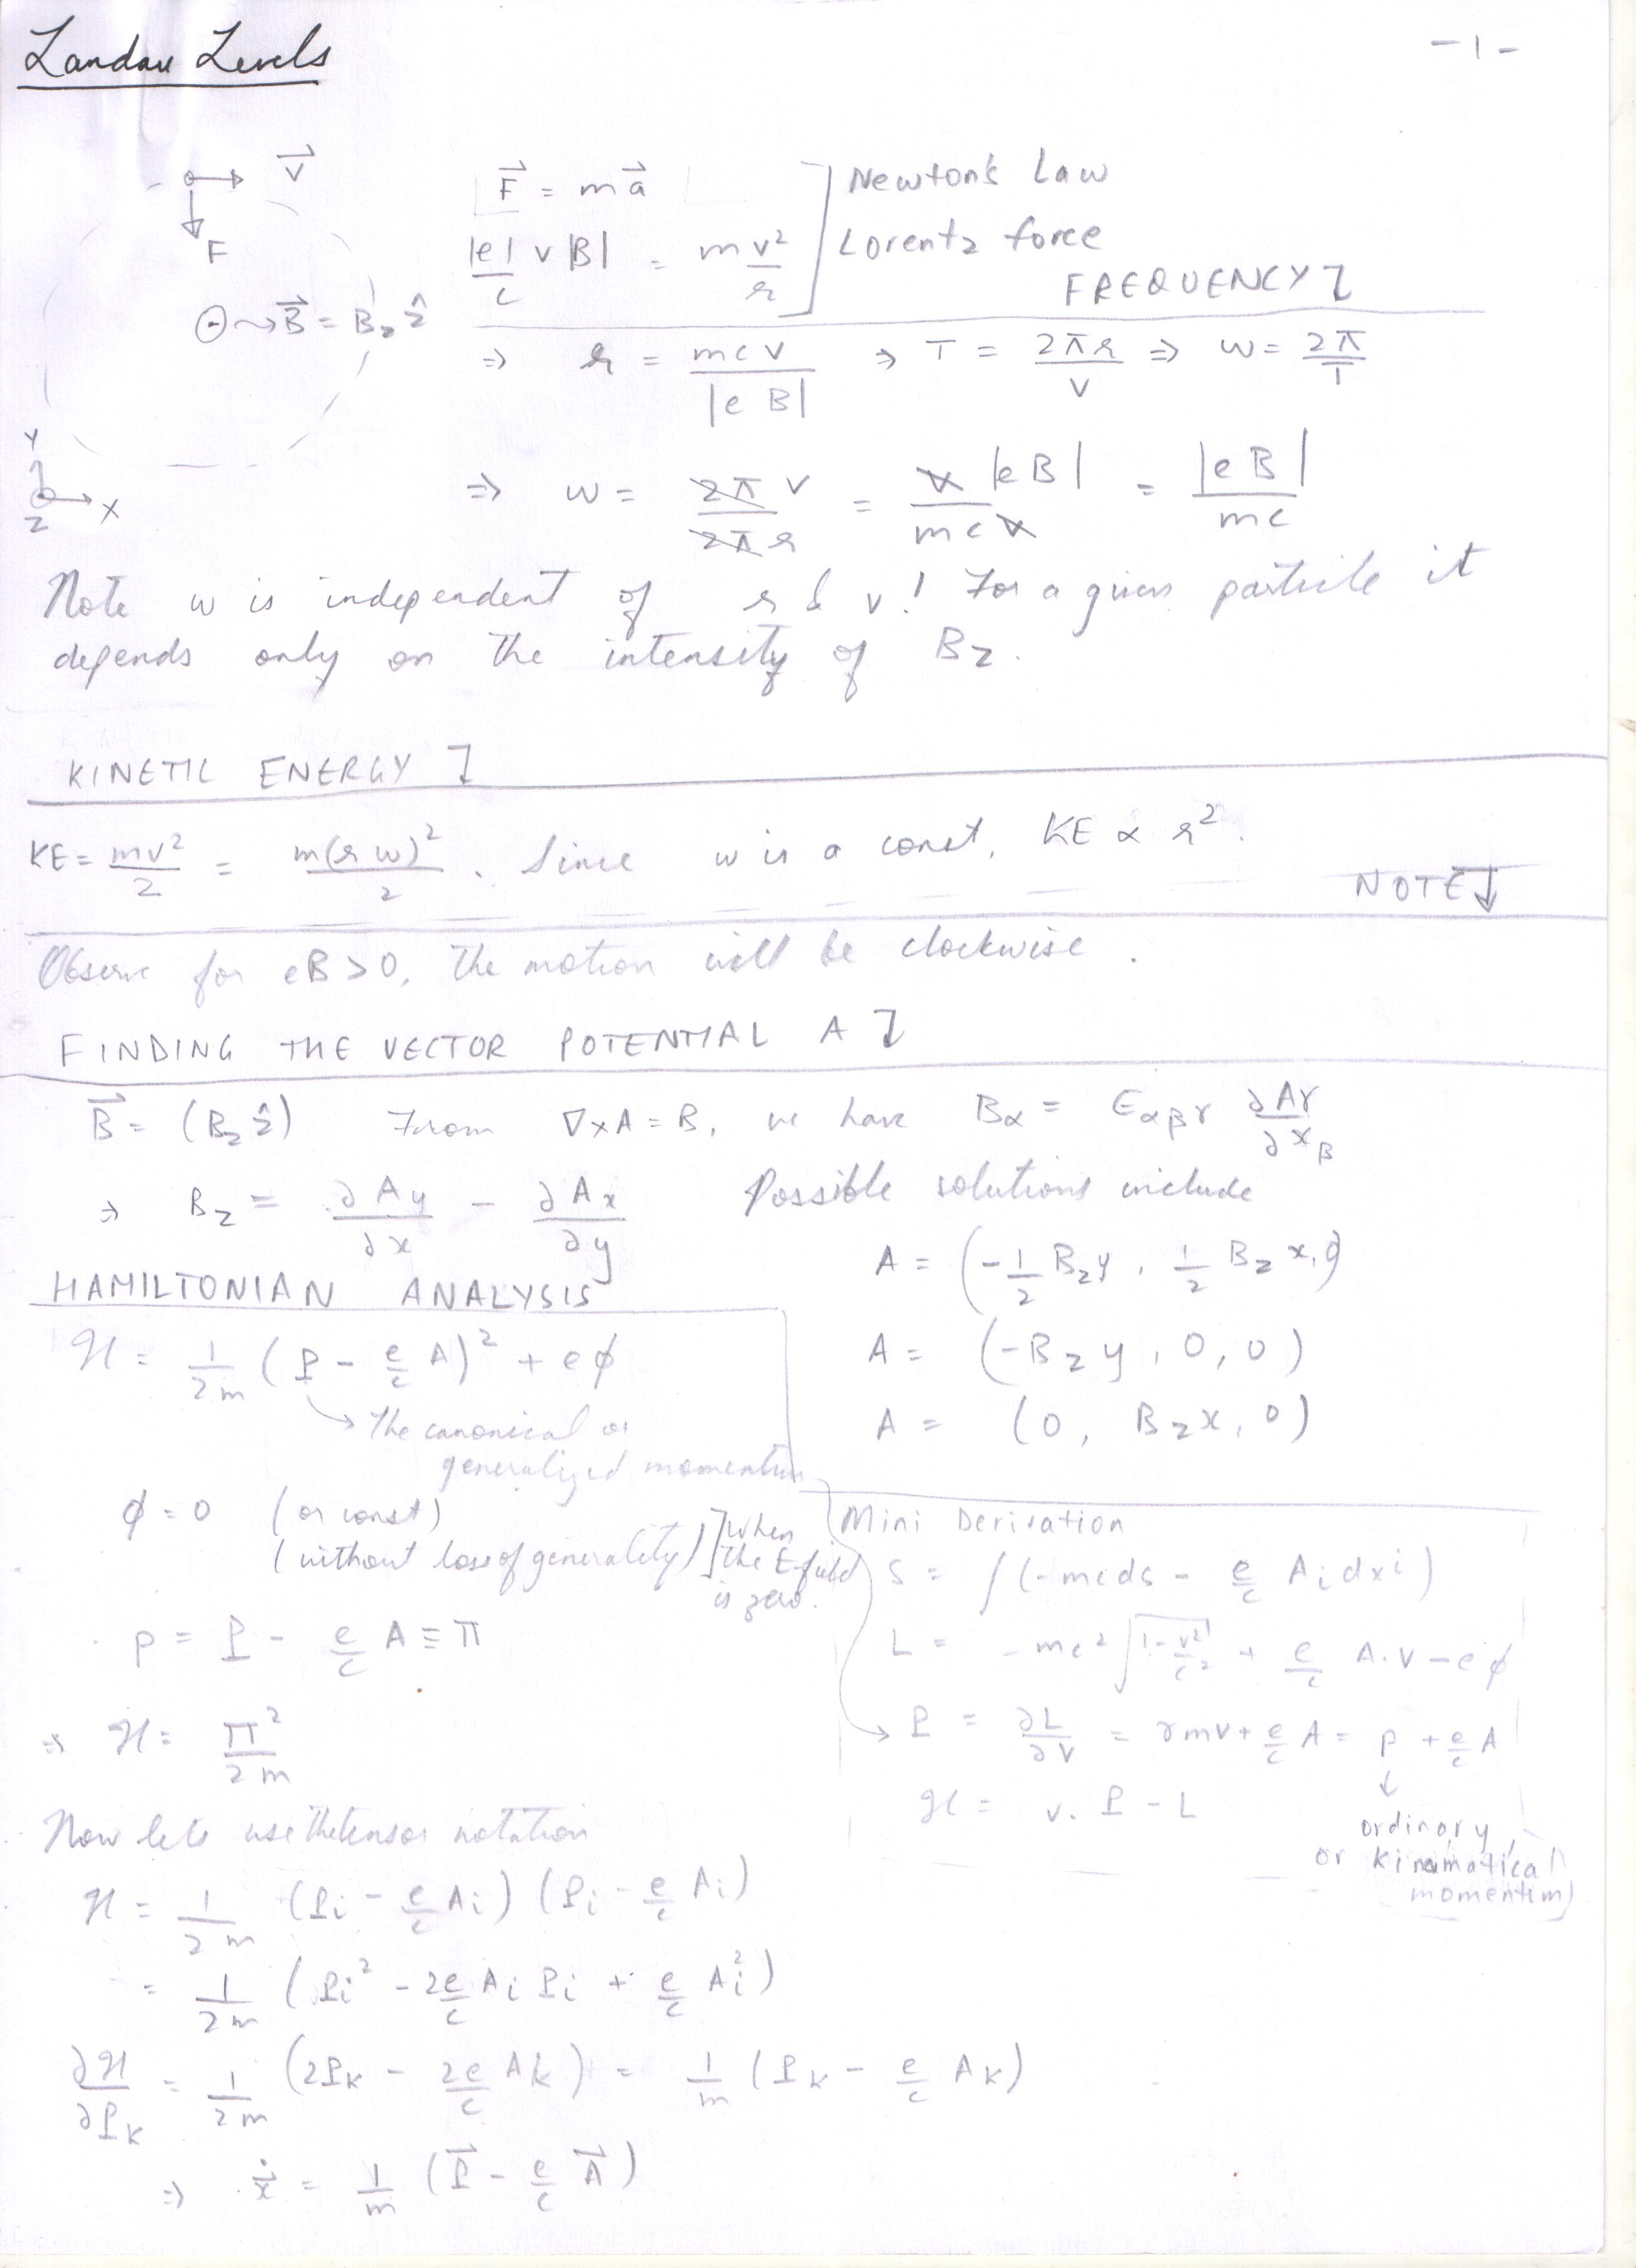 Landau Levels
-1-
v⃗
F
⊙ ⇝ B⃗ = B_z ẑ
Y
Z
X
F⃗ = m a⃗
|e|/c v |B| = m v²/r
Newton's Law
Lorentz force
FREQUENCY ↴
⇒ r = mcv/|eB| ⇒ T = 2πr/v ⇒ w = 2π/T
⇒ w = 2π v/2π r = v |eB|/mc v = |eB|/mc
Note w is independent of r & v! For a given particle it
depends only on the intensity of B_z.
KINETIC ENERGY ↴
KE = mv²/2 = m(r w)²/2 . Since w is a const, KE ∝ r².
NOTE ↓
Observe for eB > 0, the motion will be clockwise.
FINDING THE VECTOR POTENTIAL A ↴
B⃗ = (B_z ẑ) From ∇×A = B, we have B_α = ε_αβγ ∂A_γ/∂x_β
⇒ B_z = ∂A_y/∂x - ∂A_x/∂y Possible solutions include
A = (-1/2 B_z y, 1/2 B_z x, 0)
A = (-B_z y, 0, 0)
A = (0, B_z x, 0)
HAMILTONIAN ANALYSIS
ℋ = 1/2m (P - e/c A)² + eϕ
→ The canonical or
generalized momentum
ϕ = 0 (or const)
(without loss of generality)
When
the E-field
is zero.
p = P - e/c A ≡ Π
⇒ ℋ = Π²/2m
Mini Derivation
S = ∫(-mcds - e/c A_i dx^i)
L = -mc² √(1-v²/c²) + e/c A.v - eϕ
→ P = ∂L/∂v = γmv + e/c A = p + e/c A
ℋ = v. P - L
ordinary,
or kinamatical
momentum)
Now lets use the tensor notation
ℋ = 1/2m (P_i - e/c A_i) (P_i - e/c A_i)
= 1/2m (P_i² - 2e/c A_i P_i + e/c A_i²)
∂ℋ/∂P_k = 1/2m (2P_k - 2e/c A_k) = 1/m (P_k - e/c A_k)
⇒ ẋ⃗ = 1/m (P⃗ - e/c A⃗)